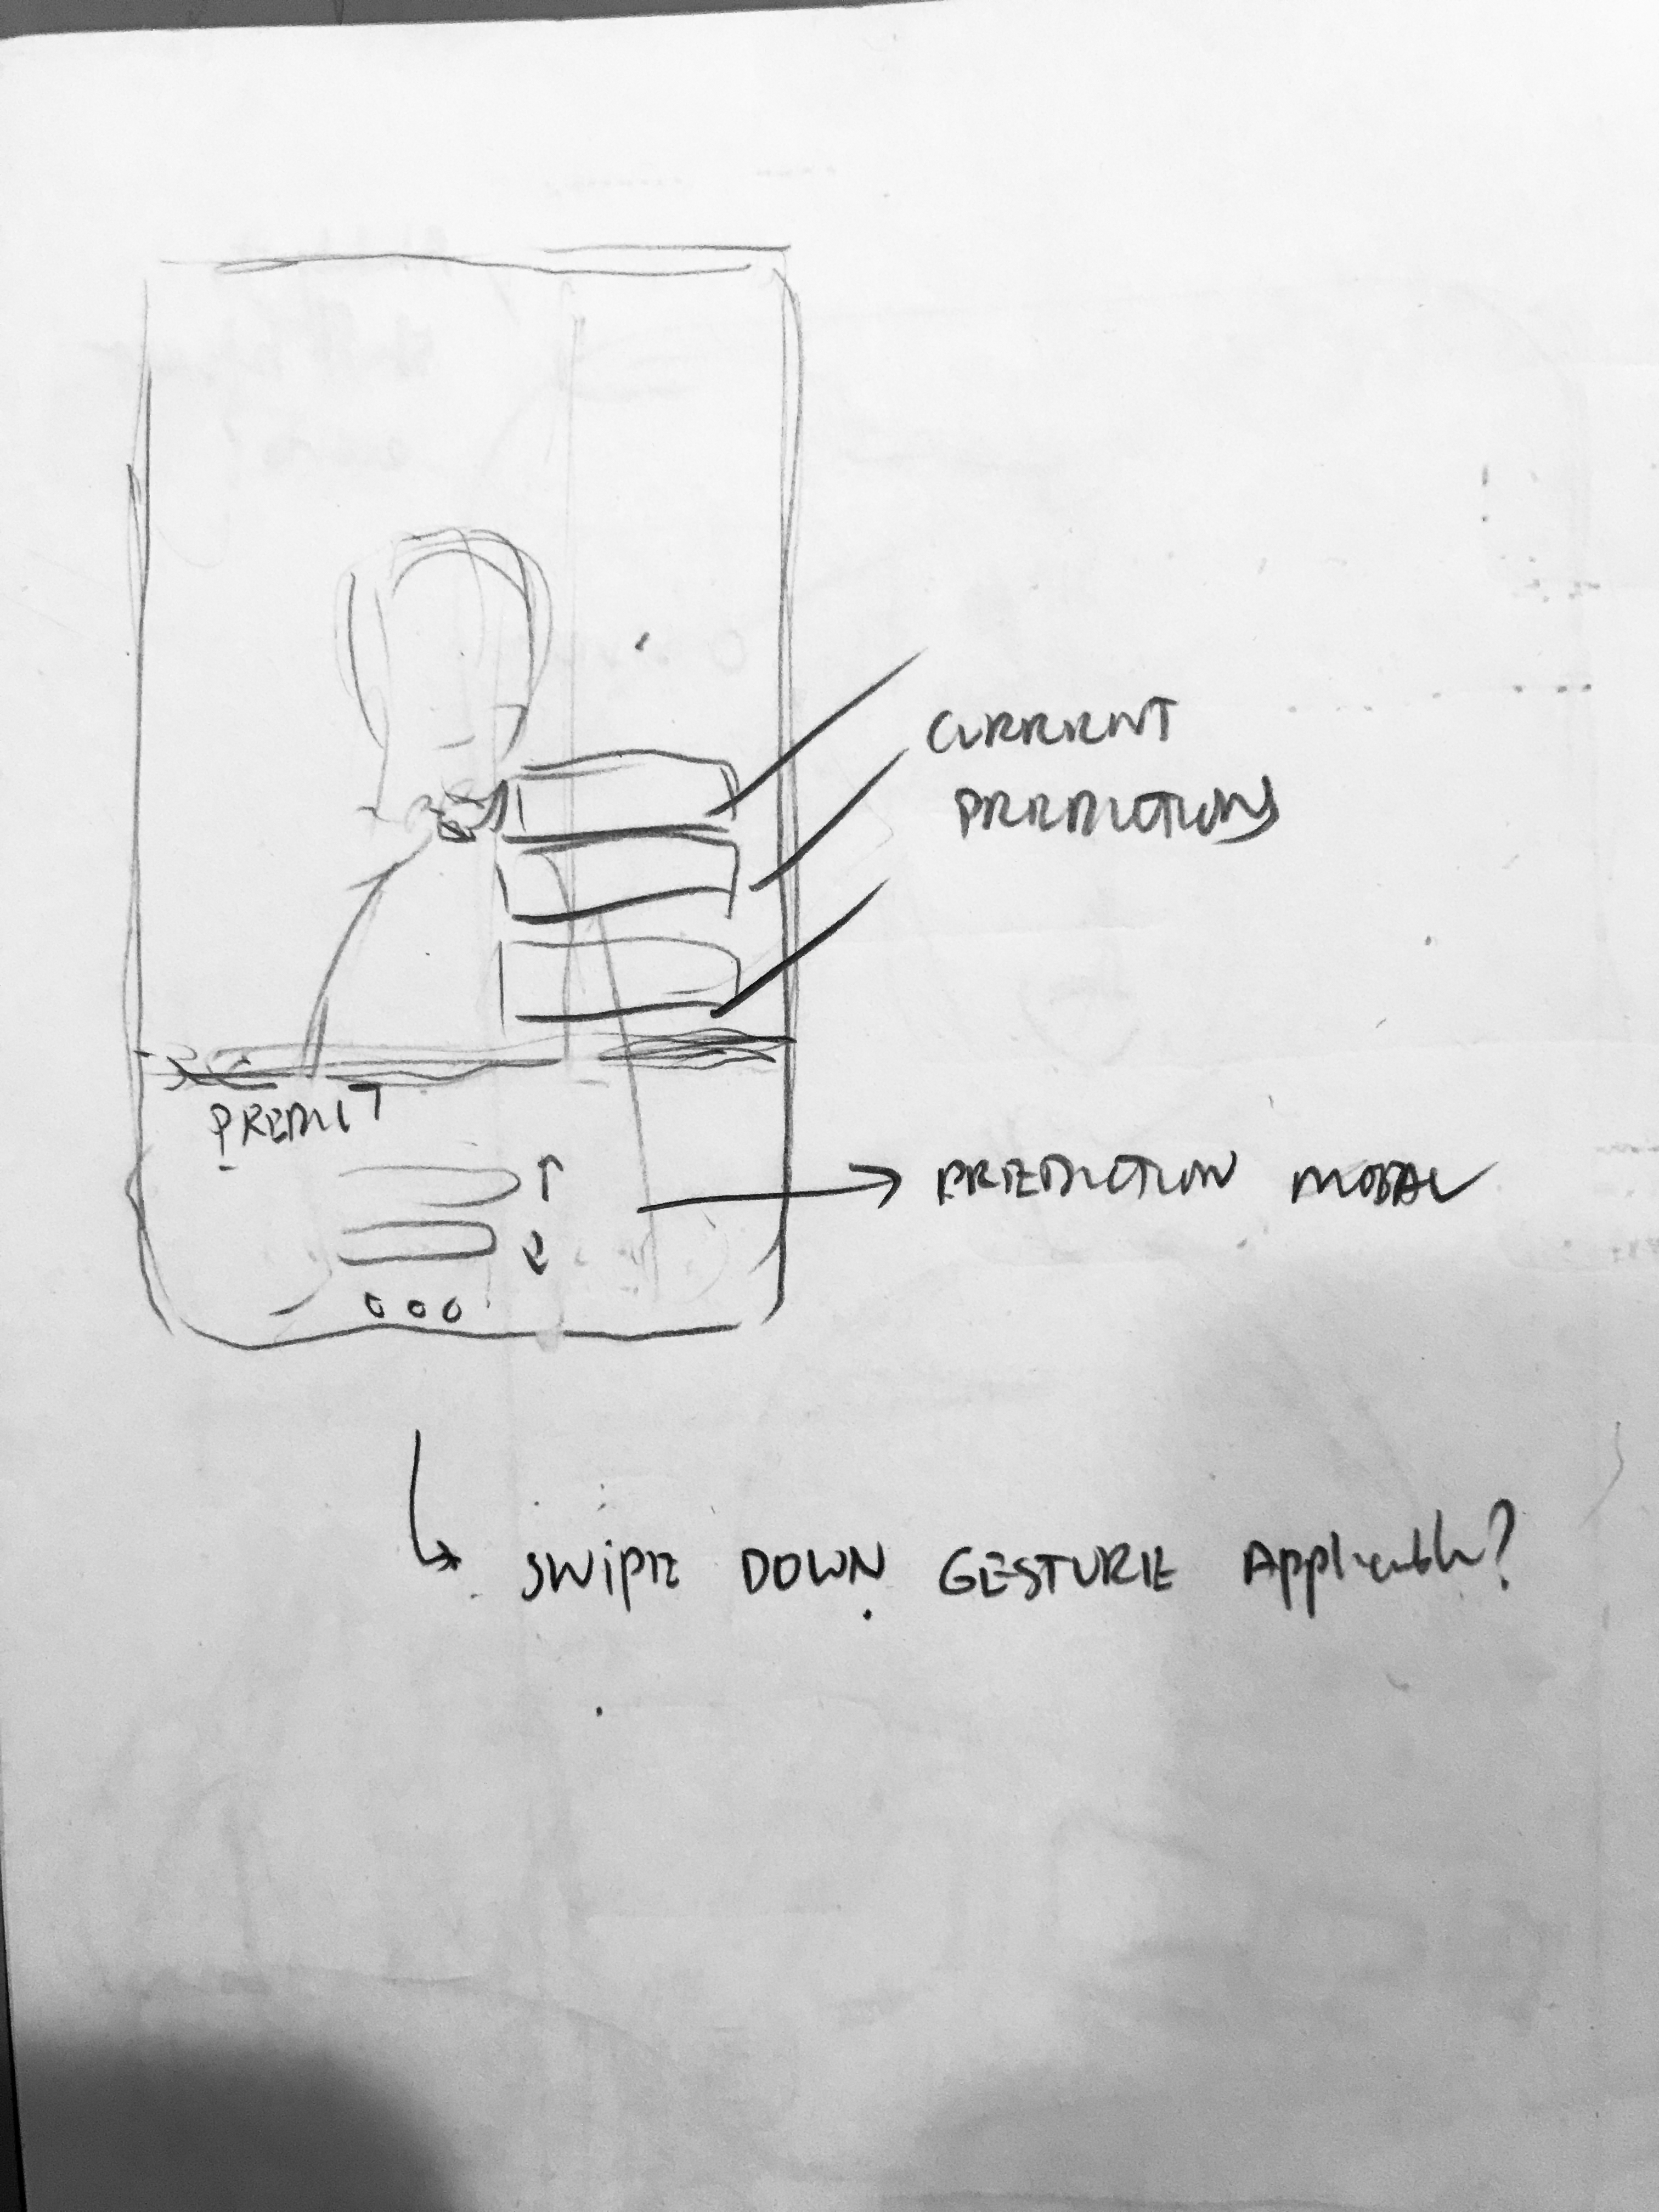 CURRENT
PREDICTIONS
PREDICT
PREDICTION MODAL
SWIPE DOWN GESTURE Applicable?